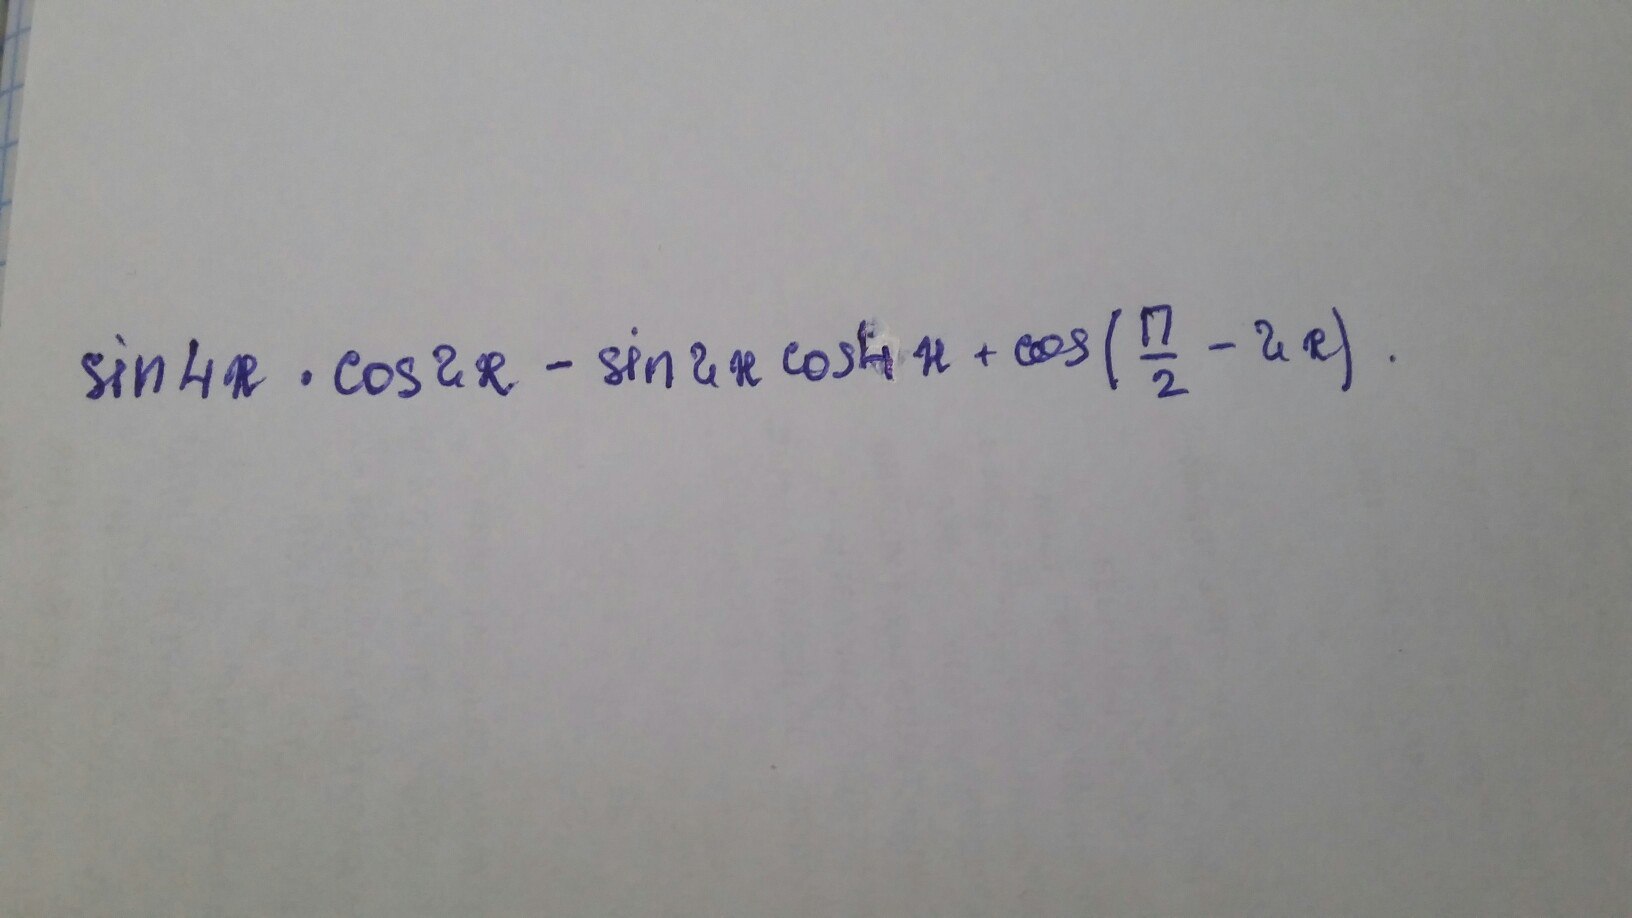 sin4x · cos2x - sin2x cos4x + cos(π/2 - 2x).